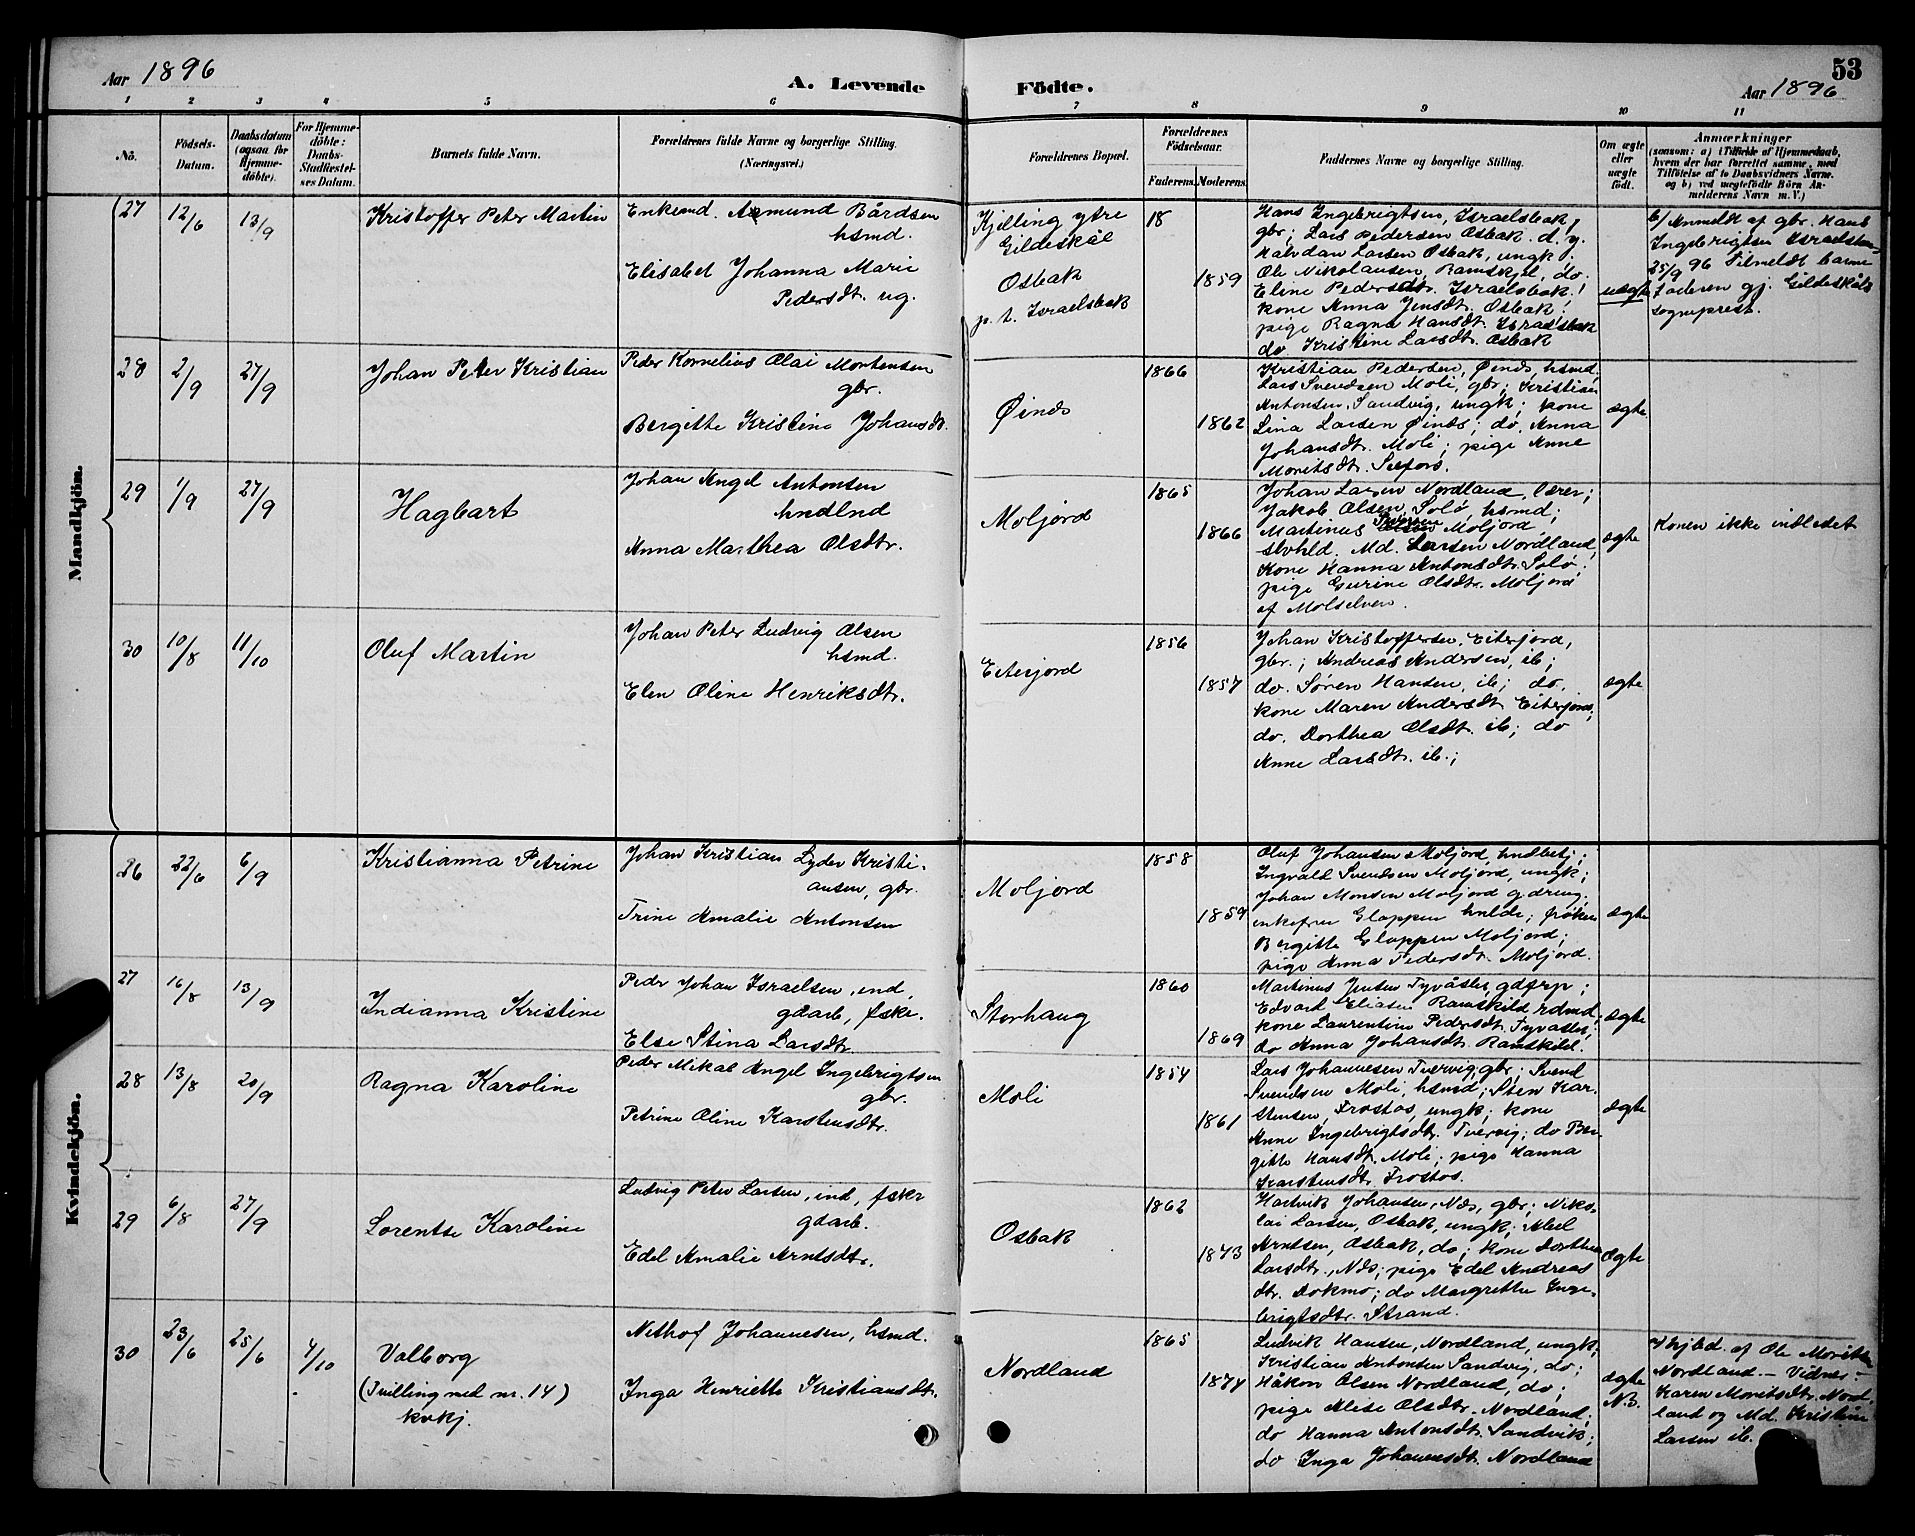 Aar 1896
A. Levende Födte.
Aar 1896
53
1 2 3 4 5 6 7 8 9 10 11
No.
Födsels-
Datum.
Daabsdatum
(ogsaa for
Hjemme-
döbte).
For Hjemme-
döbte:
Daabs-
Stadfæstel-
ses Datum.
Barnets fulde Navn.
Forældrenes fulde Navne og borgerlige Stilling.
(Næringsvei.)
Forældrenes Bopæl.
Forældrenes
Födselsaar.
Faderens. Moderens.
Faddernes Navne og borgerlige Stilling.
Om ægte
eller
uægte
födt.
Anmærkninger
(saasom: a) i Tilfælde af Hjemmedaab,
hvem der har forrettet samme, med
Tilföielse af to Daabsvidners Navne.
og b) ved uægtefödte Börn An-
melderens Navn m. V.)
Mandkjön.
27
12/6
13/9
Kristoffer Peter Martin
Enkemd. Asmund Bårdsen
hsmd.
Elisabet Johanna Marie
Pedersdt. ug.
Kjelling ytre
Gildeskål
Osbak
p. t. Israelsbak
18
1859
Hans Ingebrigtsen, Israelsbak,
gbr; Lars Pedersen Osbak. d. y.
Halvdan Larsen Osbak, ungk;
Ole Nikolausen, Ramskjel, do.
Eline Pedersdtr. Israelsbak;
kone Anna Jensdt. Osbak;
pige Ragna Hansdt. Israelsbak
do Kristine Larsdt. Osbak
uægte
b/ Anmeldt af gbr. Hans
Ingebrigtsen Israelsbak
25/9 96 Tilmeldt barne-
faderen gj. Gildeskåls
sogneprest.
28
2/9
27/9
Johan Peter Kristian
Peder Kornelius Olai Mortensen
gbr.
Bergitte Kristine Johansdt.
Øinæs
1866
1862
Kristian Pedersen, Øinæs, hsmd,
Lars Svendsen Moli, gbr; Kristian
Antonsen, Sandvig, ungk; kone
Lina Larsen Øinæs; do, Anna
Johansdt. Moli; pige Anne
Moritsdt. Selfors.
ægte
29
1/9
27/9
Hagbart
Johan Angel Antonsen
hndlnd
Anna Marthea Olsdtr.
Moljord
1865
1866
Johan Larsen Nordland, lærer;
Jakob Olsen, Solø, hsmd;
Martinus Moljord,
slvhld. Md. Larsen Nordland,
Kone Hanna Antonsdt. Solø;
pige Gurine Olsdt. Moljord
af Molselven.
ægte
Konen ikke indledet
30
10/8
11/10
Oluf Martin
Johan Peter Ludvig Olsen
hsmd.
Elen Oline Henriksdtr.
Eiterjord
1856
1857
Johan Kristoffersen, Eiterjord,
gbr.; Andreas Andersen, ib;
do. Søren Hansen, ib; do.
kone Maren Andersdt Eiterjord;
do. Dorthea Olsdt. ib; do
Anne Larsdt. ib.;
ægte
Kvindekjön.
26
22/6
6/9
Kristianna Petrine
Johan Kristian Lyder Kristi-
ansen, gbr.
Trine Amalie Antonsen
Moljord
1858
1859
Oluf Johansen Moljord, hndbetj;
Ingvald Svendsen Moljord, ungk;
Johan Monsen Moljord gdreng,
enkefru Eloppen hnlde; frøken
Bergitte Eloppen Moljord;
pige Anna Pedersdt. Moljord.
ægte
27
16/8
13/9
Indianna Kristine
Pedr Johan Israelsen, ind,
gdarb, fskr.
Else Stina Larsdt.
Storhaug
1860
1869
Martinus Jensen Tyvåsles, gdfrp;
Edvard Eliasen Ramskild, rdmd;
kone Laurentine Pedersdt. Tyvåsles,
do Anna Johansdt. Ramskild.
ægte
28
13/8
20/9
Ragna Karoline
Peder Mikal Angel Ingebrigtsen
gbr.
Petrine Oline Karstensdtr.
Moli
1854
1861
Lars Johannesen Tvervig, gbr; Svend
Svendsen Moli, hsmd; Sten Kar-
stensen, Frostos, ungk; kone
Anne Ingebrigtsdtr. Tvervig; do Ber-
gitte Hansdt. Moli; pige Hanna
Karstensdt. Frostos.
ægte
29
6/8
27/9
Lorentse Karoline
Ludvig Peter Larsen, ind, fskr
gdarb.
Edel Amalie Arntsdtr.
Osbak
1862
1873
Hartvik Johansen, Næs, gbr; Niko-
lai Larsen, Osbak, ungk; Abel
Arntsen, Osbak, do; kone Dorthea
Larsdtr., Næs; pige Edel Andreas
dtr. Dokmo; do Margrethe Inge-
brigtsdtr. Strand.
ægte
30
23/6
25/6
4/10
Valborg
(Tvilling med nr. 14)
kvkj.
Nithof Johannesen, hsmd.
Inga Henriette Kristiansdt.
Nordland
1865
1874
Ludvik Hansen, Nordland, ungk;
Kristian Antonsen Sandvig, do;
Håkon Olsen Nordland, do;
pige Alise Olsdtr. Nordland;
do Hanna Antonsdt. Sandvik;
do Inga Johannesdt. Nordland
ægte
N.B.
Hjbd. af Ole Moritsen
Nordland. - Vidner:
Karen Moritsdtr. Nord-
land og Md. Kristine
Larsen ib.